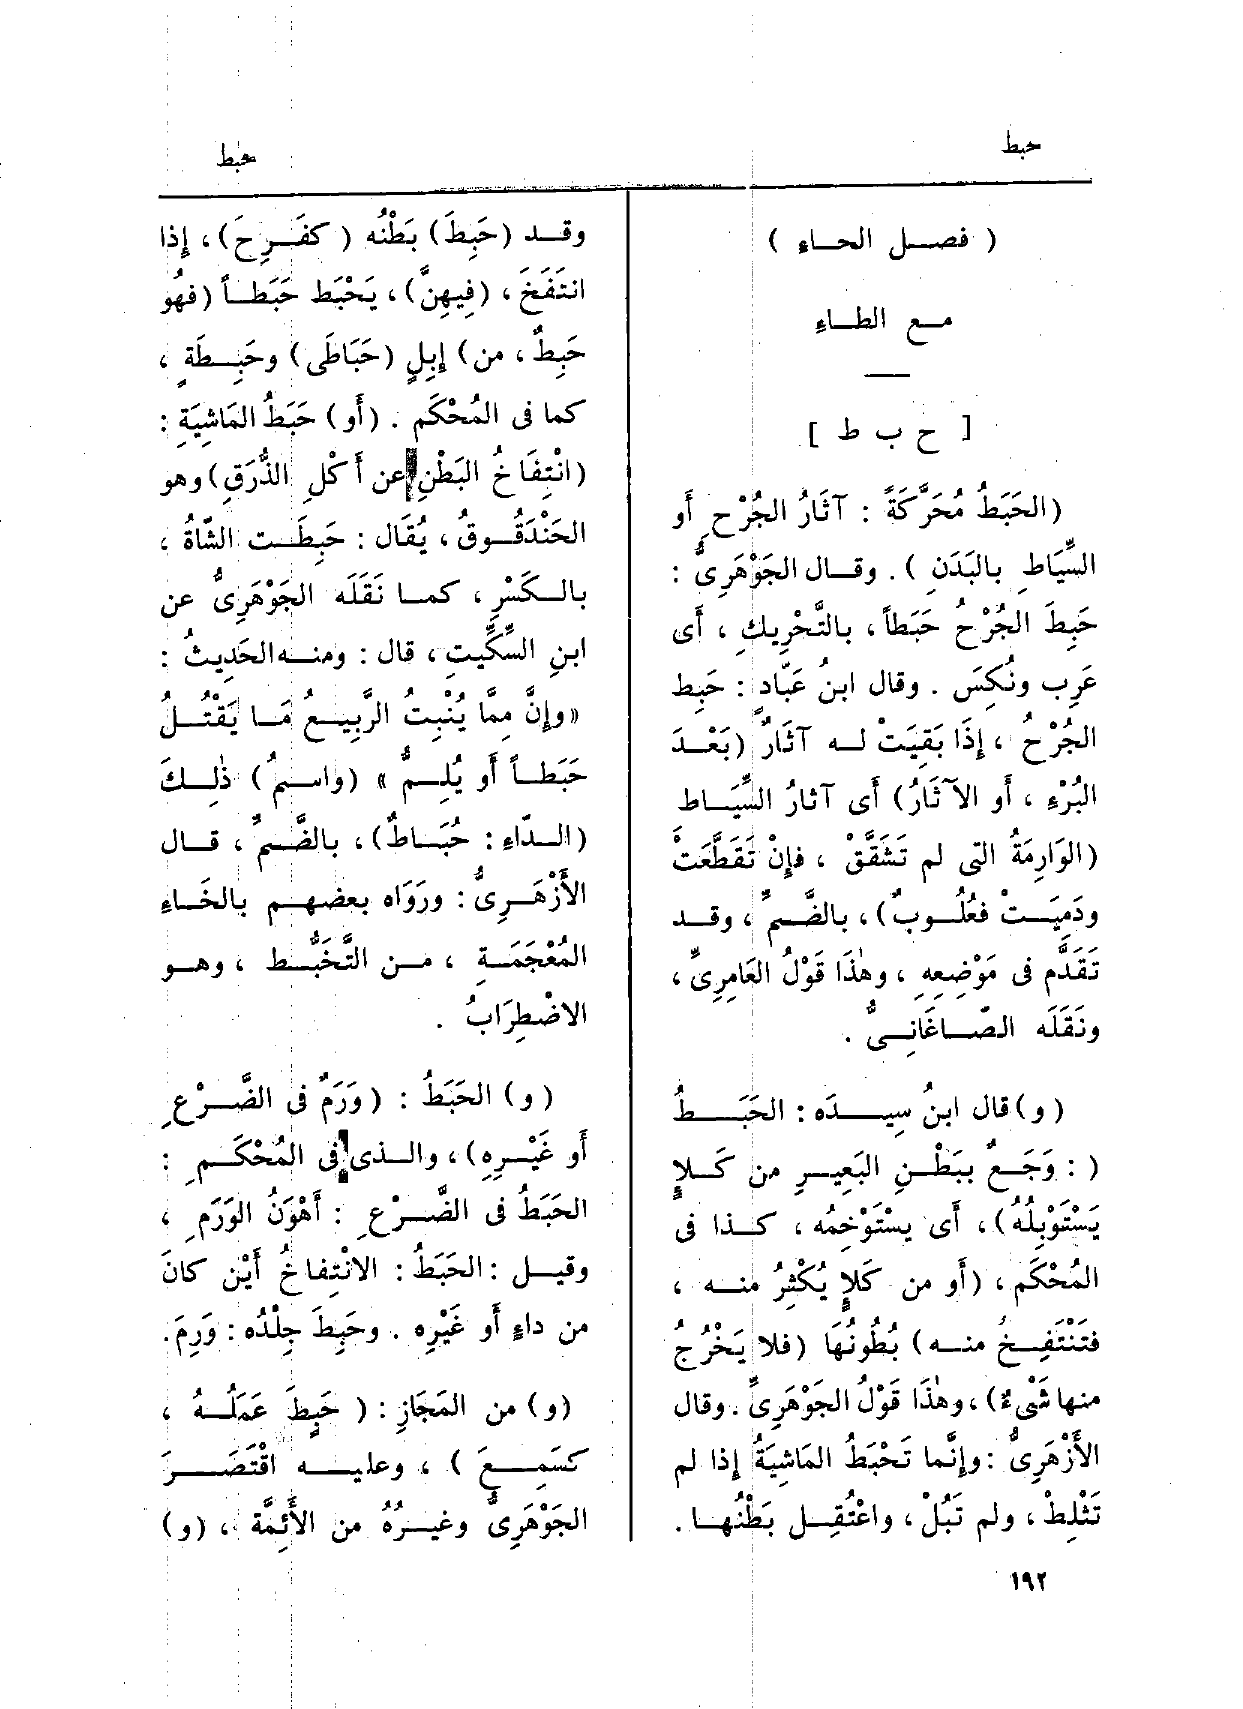 حبط
حبط
( فصـل الحـاء )
مـع الطـاءِ
[ ح ب ط ]
(الحَبَطُ مُحَرَّكَةً : آثَارُ الجُرْحِ أَو
السِّيَاطِ بالبَدَنِ ) . وقـال الجَوْهَرِىُّ :
حَبِطَ الجُرْحُ حَبَطاً ، بالتَّحْرِيكِ ، أَى
عَرِب ونُكِسَ . وقال ابنُ عَبّادٍ : حَبِط
الجُرْحُ ، إِذَا بَقِيَتْ لـه آثَارٌ (بَعْـدَ
البُرْءِ ، أَو الآثَارُ) أَى آثارُ السِّيَـاط
(الوَارِمَةُ التى لم تَشَقَّقْ ، فإِنْ تَقَطَّعَتْ
ودَمِيَـتْ فعُلُـوبٌ) ، بالضَّـمِّ ، وقـد
تَقَدَّم فى مَوْضِعِهِ ، وهٰذَا قَوْلُ العَامِرِىِّ ،
ونَقَلَه الصّـاغَانِـىُّ .
( و) قال ابنُ سِيـدَه : الحَبَـطُ
( : وَجَـعٌ ببَطْـنِ البَعِيـرِ من كَـلإٍ
يَسْتَوْبِلُهُ) ، أَى يسْتَوْخِمُه ، كـذا فى
المُحْكَم ، (أَو من كَلإٍ يُكْثِرُ منـه ،
فتَنْتَفِـخُ منـه ) بُطُونُهَا (فلا يَخْرُجُ
منها شَىْءٌ) ، وهٰذَا قَوْلُ الجَوْهَرِىِّ . وقال
الأَزْهَرِىُّ : وإِنَّما تَحْبَطُ المَاشِيَةُ إِذا لم
تَثْلِطْ ، ولم تَبُلْ ، واعْتُقِـل بَطْنُهـا .
وقـد (حَبِطَ) بَطْنُه ( كفَـرِحَ) ، إِذا
انتَفَخَ ، (فِيهِنَّ) ، يَحْبَط حَبَطـاً (فهُو
حَبِطٌ ، من) إِبِلٍ (حَبَاطَى) وحَبِـطَةٍ ،
كما فى المُحْكَم . (أَو) حَبَطُ المَاشِيَةِ :
(انْتِفَاخُ البَطْنِ عن أَكْلِ الذُّرَقِ) وهو
الحَنْدَقُـوقُ ، يُقَال : حَبِطَـت الشّاةُ ،
بالـكَسْرِ ، كمـا نَقَلَه الجَوْهَرِىُّ عن
ابنِ السِّكِّيتِ ، قال : ومنـه الحَدِيثُ :
«وإِنَّ مِمَّا يُنْبِتُ الرَّبِيـعُ مَـا يَقْتُـلُ
حَبَطـاً أَو يُلِـمُّ » (واسـمُ) ذٰلِـكَ
(الـدّاءِ : حُبَـاطٌ) ، بالضَّـمِّ ، قـال
الأَزْهَـرِىُّ : ورَوَاه بعضهـم بالخَـاءِ
المُعْجَمَـةِ ، مـن التَّخَبُّـط ، وهـو
الاضْطِرَابُ .
( و) الحَبَطُ : (وَرَمٌ فى الضَّـرْعِ
أَو غَيْـرِهِ) ، والـذى فى المُحْكَـمِ :
الحَبَطُ فى الضَّـرْعِ : أَهْوَنُ الوَرَمِ ،
وقيـل : الحَبَطُ : الانْتِفاخُ أَيْن كانَ
من داءٍ أَو غَيْرِه . وحَبِطَ جِلْدُه : وَرِمَ .
(و) من المَجَازِ : ( حَبِطَ عَمَلُـهُ ،
كسَمِـعَ ) ، وعليـه اقْتَصَـرَ
الجَوْهَرِىُّ وغيـرُهُ من الأَئِمَّة ، (و)
١٩٢